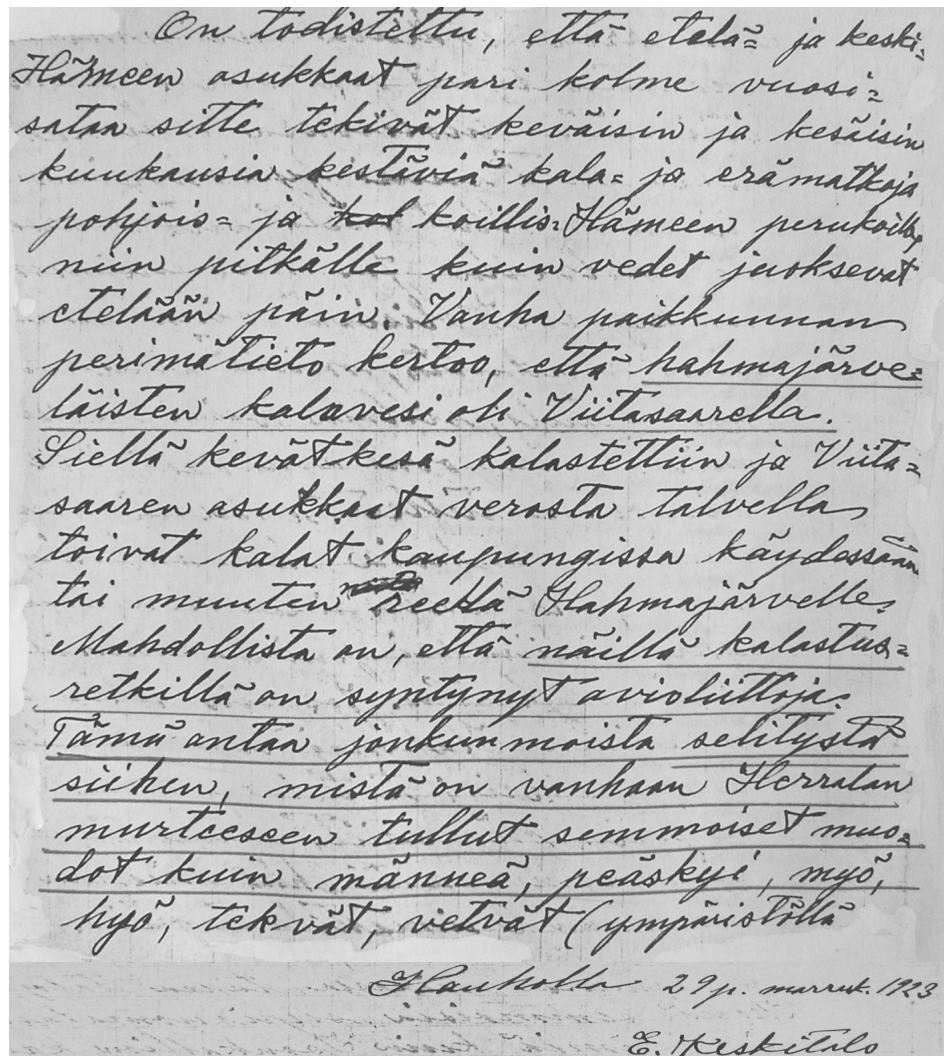 On todistettu, että etelä= ja keski=
Hämeen asukkaat pari kolme vuosi=
sataa sitte tekivät keväisin ja kesäisin
kuukausia kestäviä kala= ja erämatkoja
pohjois= ja kol koillis=Hämeen perukoille,
niin pitkälle kuin vedet juoksevat
etelään päin. Vanha paikkunnan
perimätieto kertoo, että hahmajärve=
läisten kalavesi oli Viitasaarella.
Siellä kevätkesä kalastettiin ja Viita=
saaren asukkaat verosta talvella
toivat kalat kaupungissa käydessään
tai muuten reellä Hahmajärvelle.
Mahdollista on, että näillä kalastus=
retkillä on syntynyt avioliittoja.
Tämä antaa jonkunmoista selitystä
siihen, mistä on vanhaan Herralan
murteeseen tullut semmoiset muo=
dot kuin männeä, peäskyi, myö,
hyö, tekvät, vetvät (ympäristöllä
Hauholla 29 p. marrusk. 1923
E. Keskitalo